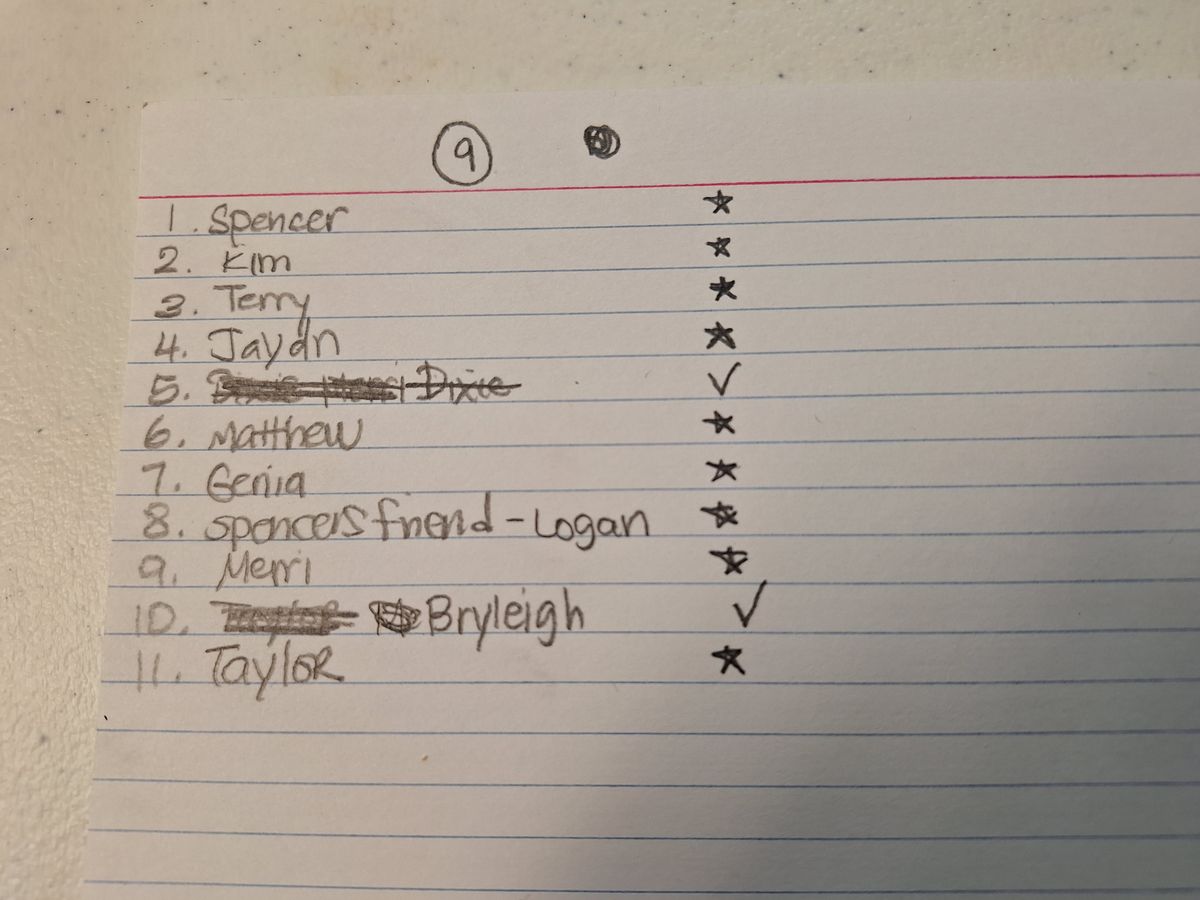 9
1. Spencer ★
2. Kim ★
3. Terry ★
4. Jaydn ★
5. Dixie ✓
6. Matthew ★
7. Genia ★
8. Spencers friend - Logan ★
9. Merri ★
10. Bryleigh ✓
11. Taylor ★